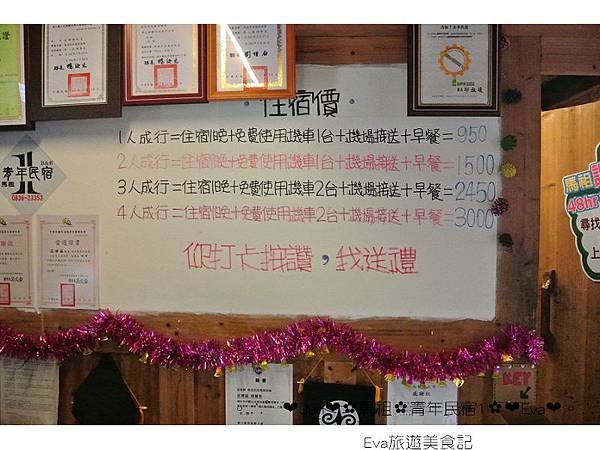 住宿價
1人成行=住宿1晚+免費使用機車1台+機場接送+早餐=950
2人成行=住宿1晚+免費使用機車1台+機場接送+早餐=1500
3人成行=住宿1晚+免費使用機車2台+機場接送+早餐=2450
4人成行=住宿1晚+免費使用機車2台+機場接送+早餐=3000
你打卡按讚,我送禮
青年民宿
B&B
馬祖
1
0836-23353
馬祖
48hr
尋找
上
KEY
馬祖✿青年民宿1✿❤Eva❤。
Eva旅遊美食記